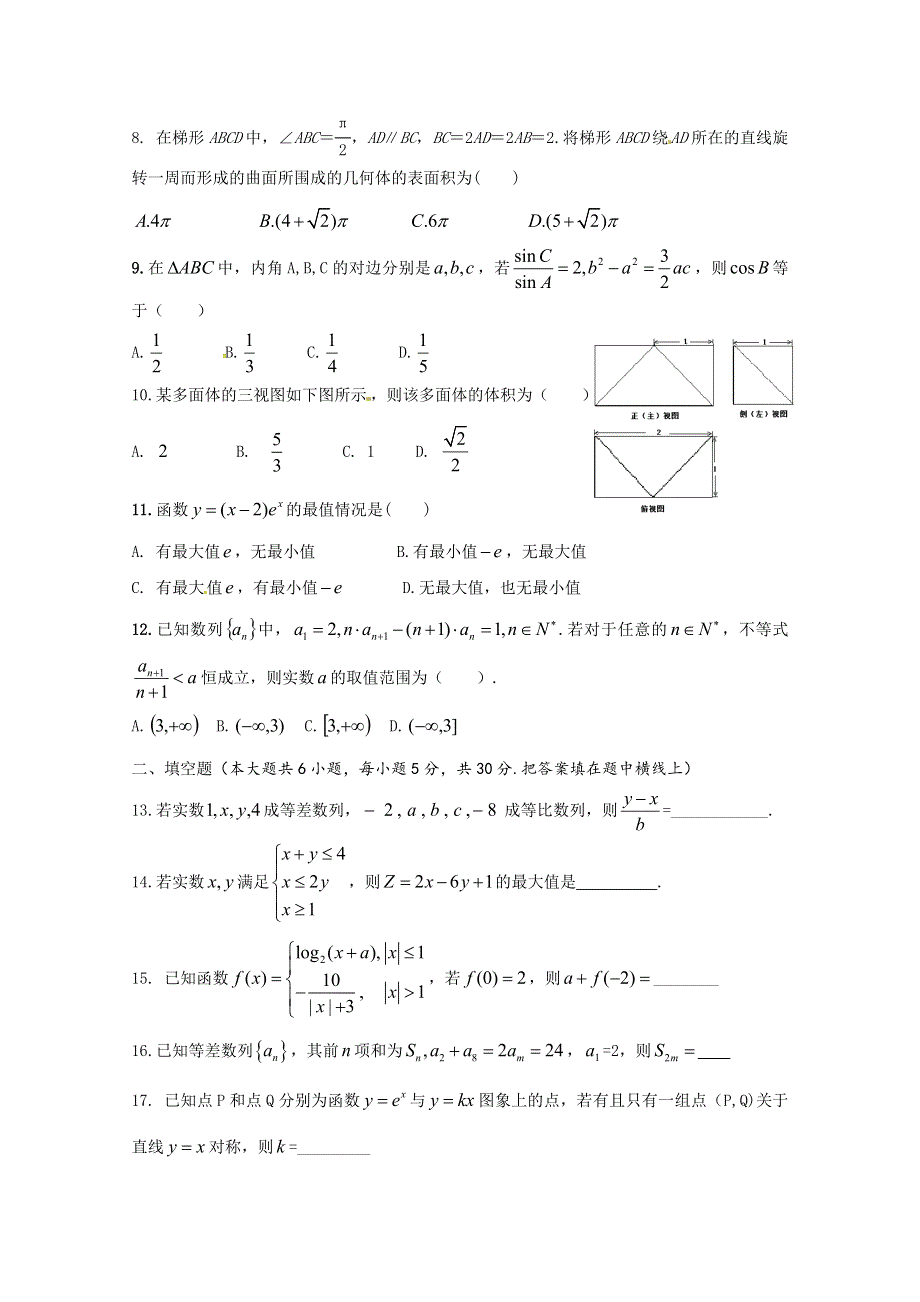 8. 在梯形 ABCD 中，∠ABC＝π/2，AD∥BC，BC＝2AD＝2AB＝2.将梯形 ABCD 绕 AD 所在的直线旋
转一周而形成的曲面所围成的几何体的表面积为(　　)
A.4π　　B.(4+√2)π　　C.6π　　D.(5+√2)π
9.在 ΔABC 中，内角 A,B,C 的对边分别是 a,b,c，若 sin C/sin A = 2, b² − a² = 3/2 ac，则 cos B 等
于（　　）
A. 1/2　　B. 1/3　　C. 1/4　　D. 1/5
10.某多面体的三视图如下图所示，则该多面体的体积为（　　）
A. 2　　B. 5/3　　C. 1　　D. √2/2
1
1
正（主）视图
侧（左）视图
2
1
俯视图
11.函数 y = (x − 2)eˣ 的最值情况是(　　)
A. 有最大值 e，无最小值　　B.有最小值 −e，无最大值
C. 有最大值 e，有最小值 −e　　D.无最大值，也无最小值
12.已知数列 {aₙ} 中，a₁ = 2, n·aₙ₊₁ − (n+1)·aₙ = 1, n∈N*.若对于任意的 n∈N*，不等式
aₙ₊₁/(n+1) < a 恒成立，则实数 a 的取值范围为（　　）.
A.(3,+∞)　B.(−∞,3)　C.[3,+∞)　D.(−∞,3]
二、填空题（本大题共 6 小题，每小题 5 分，共 30 分.把答案填在题中横线上）
13.若实数 1, x, y,4 成等差数列，− 2 , a , b , c ,− 8 成等比数列，则 (y − x)/b =____________.
14.若实数 x, y 满足 {x + y ≤ 4, x ≤ 2y, x ≥ 1，则 Z = 2x − 6y + 1 的最大值是__________.
15. 已知函数 f(x) = {log₂(x + a), |x| ≤ 1; −10/(|x|+3), |x| > 1，若 f(0) = 2，则 a + f(−2) = ________
16.已知等差数列 {aₙ}，其前 n 项和为 Sₙ, a₂ + a₈ = 2aₘ = 24，a₁=2，则 S₂ₘ = ____
17. 已知点 P 和点 Q 分别为函数 y = eˣ 与 y = kx 图象上的点，若有且只有一组点（P,Q)关于
直线 y = x 对称，则 k =_________